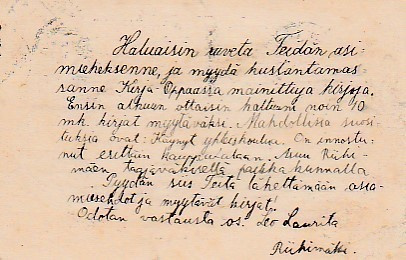 Haluaisin ruveta Teidän asi-
mieheksenne, ja myydä kustantamas-
sanne Kirja-Oppaassa mainittuja kirjoja.
Ensin alkuun ottaisin haltuuni noin 10
mk. kirjat myytäväksi. Mahdollisia suosi-
tuksia ovat: Käynyt yhteiskoulua. On innostu-
nut erittäin kauppa-alaan. Asuu Riihi-
mäen taajaväkisellä paikkakunnalla
Pyydän siis Teitä lähettämään asia-
miesehdot ja myytävät kirjat!
Odotan vastausta os. Leo Laurita
Riihimäki.